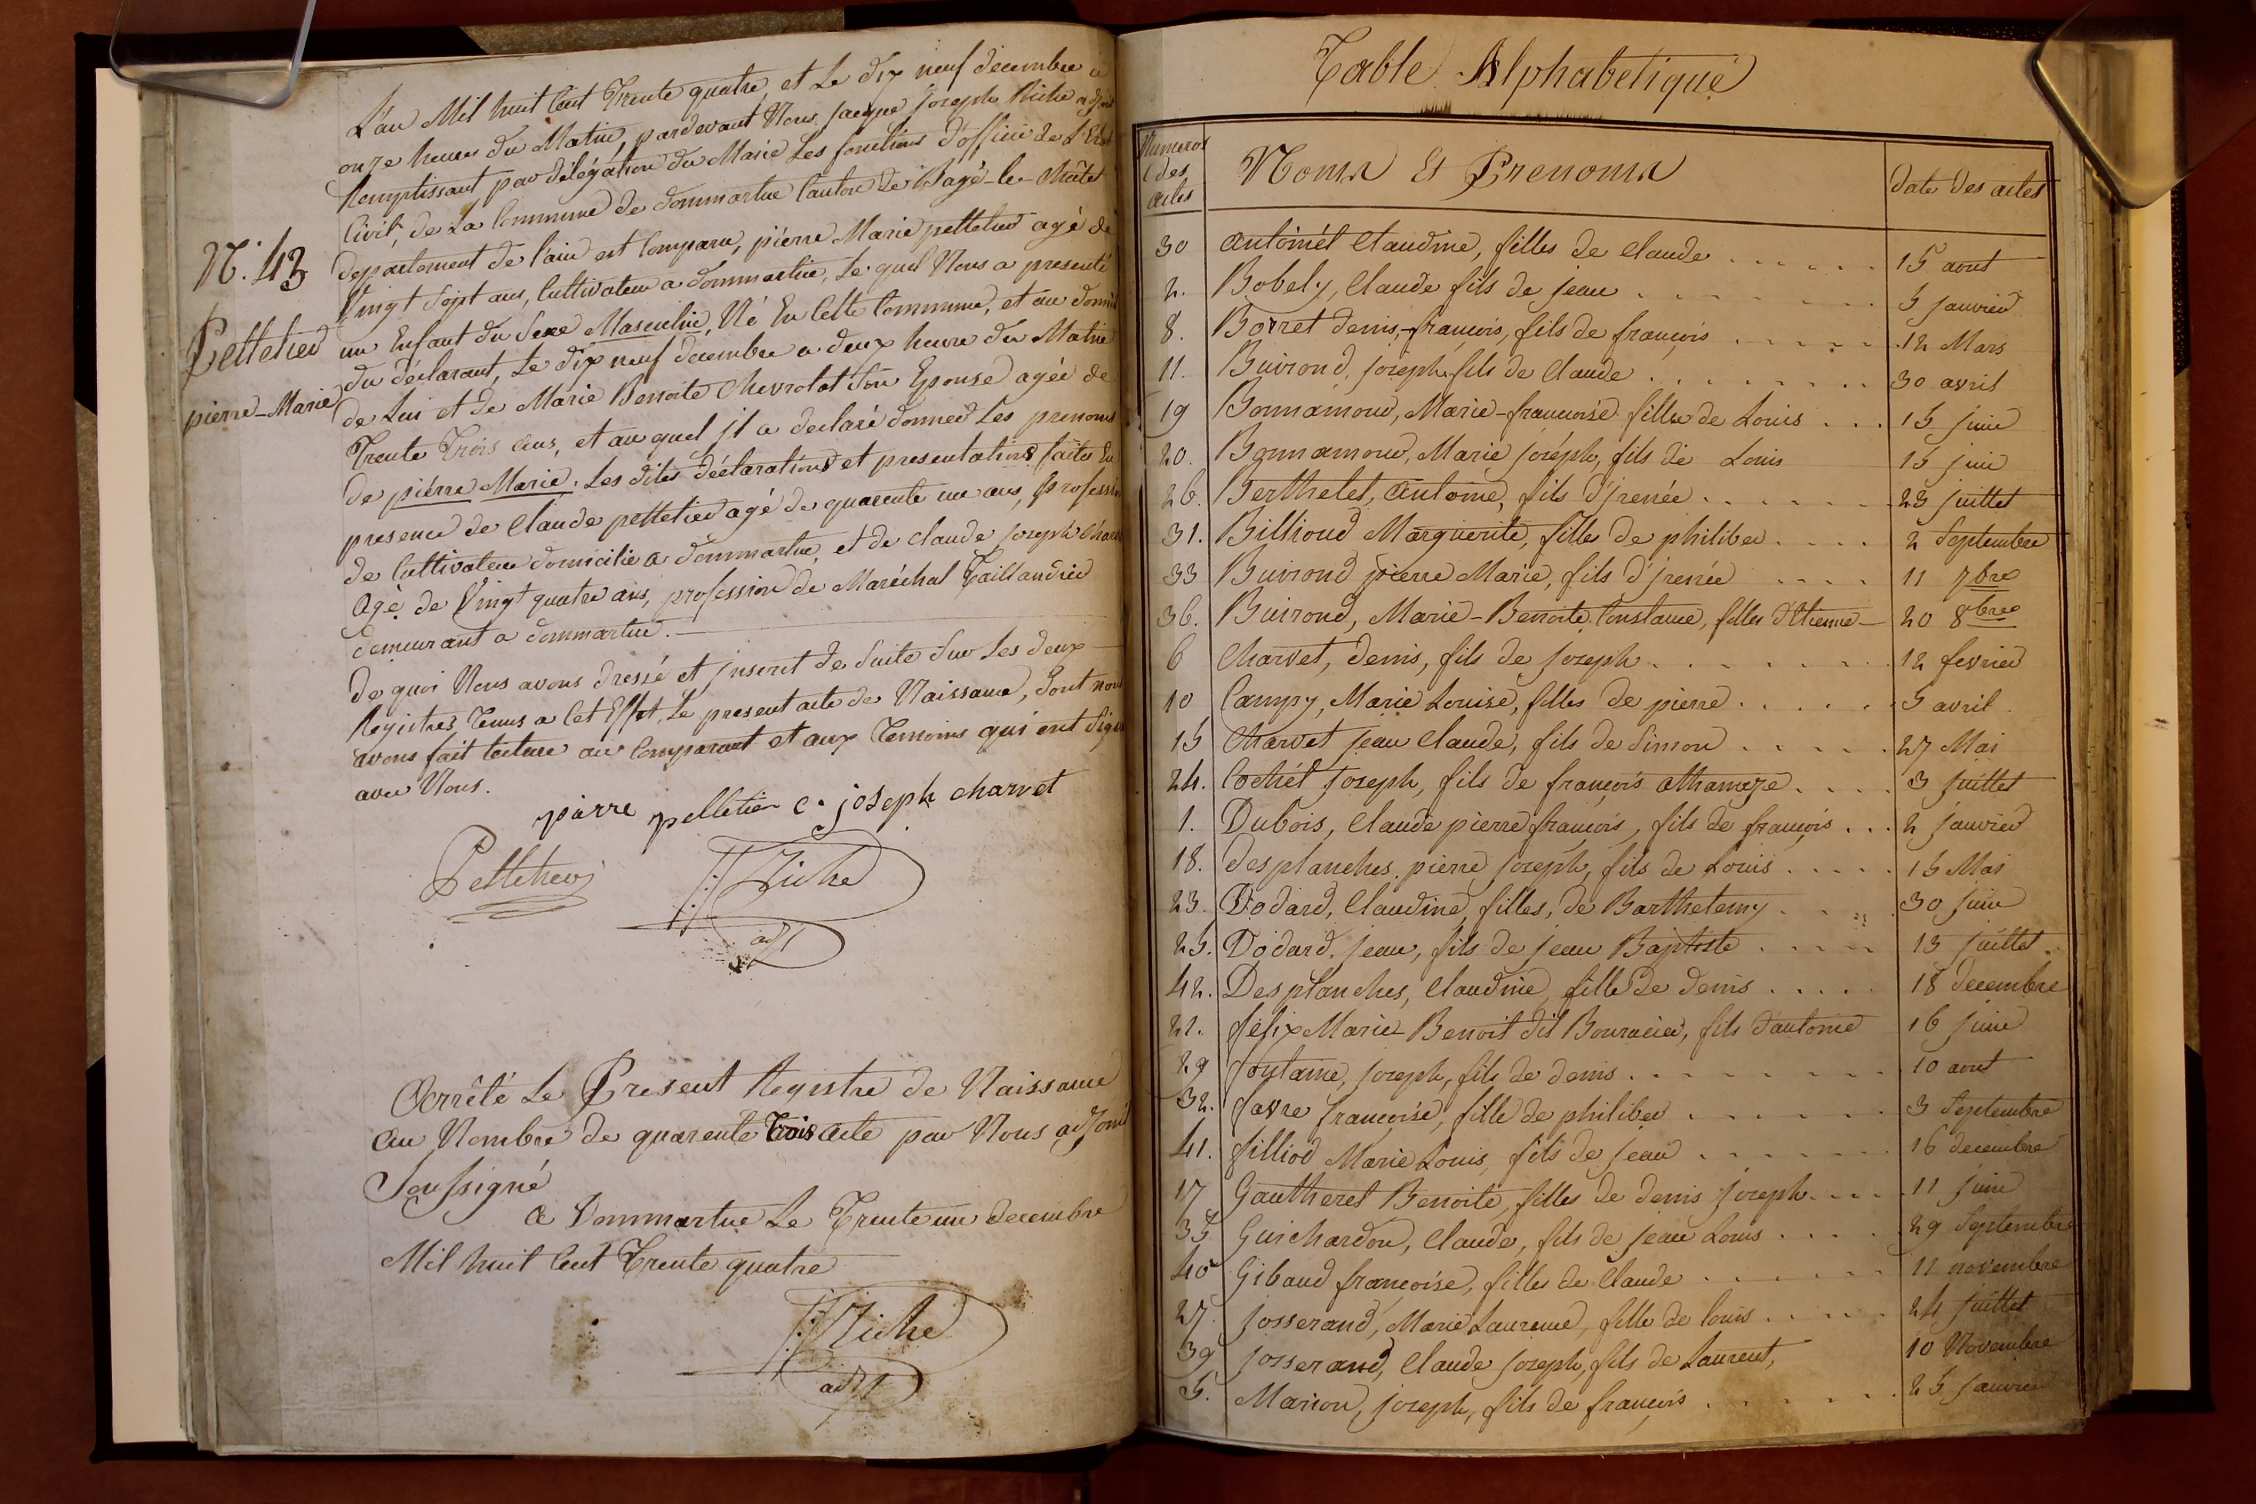 L'an Mil huit Cent Trente quatre, et Le dix neuf decembre a
onze heures du Matin, pardevant Nous jacque joseph Riche adjoint
Remplissant par délégation du Maire Les fonctions d'officier de L'Etat
Civil, de La Commune de dommartin Canton de Bagé-le-Châtel
departement de l'ain est Comparu, piérre Marie pelletier agé de
Vingt Sept ans, Cultivateur a dommartin, Le quel Nous a presenté
un Enfant du Sexe Masculin, Né En Cette Commune, et au domicile
du déclarant, Le dix neuf décembre a deux heure du Matin
de Lui et de Marie Benoite Chevrolat Son Epouse agée de
Trente Trois ans, et au quel jl a declaré donner Les prenoms
de piérre Marie. Les dites déclarations et presentations faites En
presence de Claude pelletier agé de quarente un ans, profession
de Cultivateur domicilié a dommartin, et de claude joseph Charvet
Agé de Vingt quatre ans, profession de Maréchal Taillandier
demeurant a dommartin.
de quoi Nous avons dressé et jnscrit de Suite Sur Les deux
Registres Tenus a Cet Effet Le present acte de Naissance, dont nous
avons fait lecture au Comparant et aux Temoins qui ont Signé
avec Nous.
N.° 43
Pelletier
pierre-Marie
pierre pelletier C. joseph charvet
Pelletier
JJ Riche
adjt
Arrêté Le Present Registre de Naissance
au Nombre de quarente trois acte par Nous adjoint
Soussigné
A Dommartin Le Trente un decembre
Mil huit Cent Trente quatre
JJ Riche
adjt
Table Alphabetique
Numeros des actes Noms Et Prenoms date des actes
30 antoinét Claudine, filles de Claude 15 aout
2. Bobely, Claude fils de jean 5 janvier
8. Borret denis-françois, fils de françois 12 Mars
11. Buirond, joseph fils de Claude 30 avril
19 Bonnamour, Marie-francoise fille de Louis 15 juin
20. Bonnamour, Marie joséph, fils de Louis 15 juin
26. Berthelet, antoine, fils d'jrenée 23 juillet
31. Billioud Marguerite, fille de philiber 2 Septembre
33 Buirond pierre Marie, fils d'jrenée 11 7bre
36. Buirond, Marie-Benoite Constance, filles d'Etienne 20 8bre
6 Charvet, denis, fils de joseph 12 fevrier
10 Campy, Marie Louise, filles de pierre 5 avril
15 Charvet jean Claude, fils de Simon 27 Mai
24. Cochét joseph, fils de françois athanaze 3 juillet
1. Dubois, Claude pierre françois, fils de françois 2 janvier
18. desplanches, pierre joseph, fils de Louis 15 Mai
23. Dodard, Claudine, filles, de Barthelemy 30 juin
25. Dodard, jean, fils de jean Baptiste 13 juillet
42. Desplanches, Claudine, fille de denis 18 decembre
21. félix Marie Benoit dit Bouracier, fils d'antoine 16 juin
29 fontaine, joseph, fils de denis 10 aout
32. favre françoise, fille de philiber 3 Septembre
41. filliod Marie Louis, fils de jean 16 decembre
17 Gautheret Benoite, filles de denis joseph 11 juin
35 Guichardon, Claude, fils de jean Louis 29 Septembre
40 Gibaud françoise, filles de Claude 11 novembre
27. josserand, Marie Laurence, fille de louis 24 juillet
39 josserand, Claude joseph, fils de Laurent, 10 Novembre
5. Marion, joseph, fils de françois 25 janvier